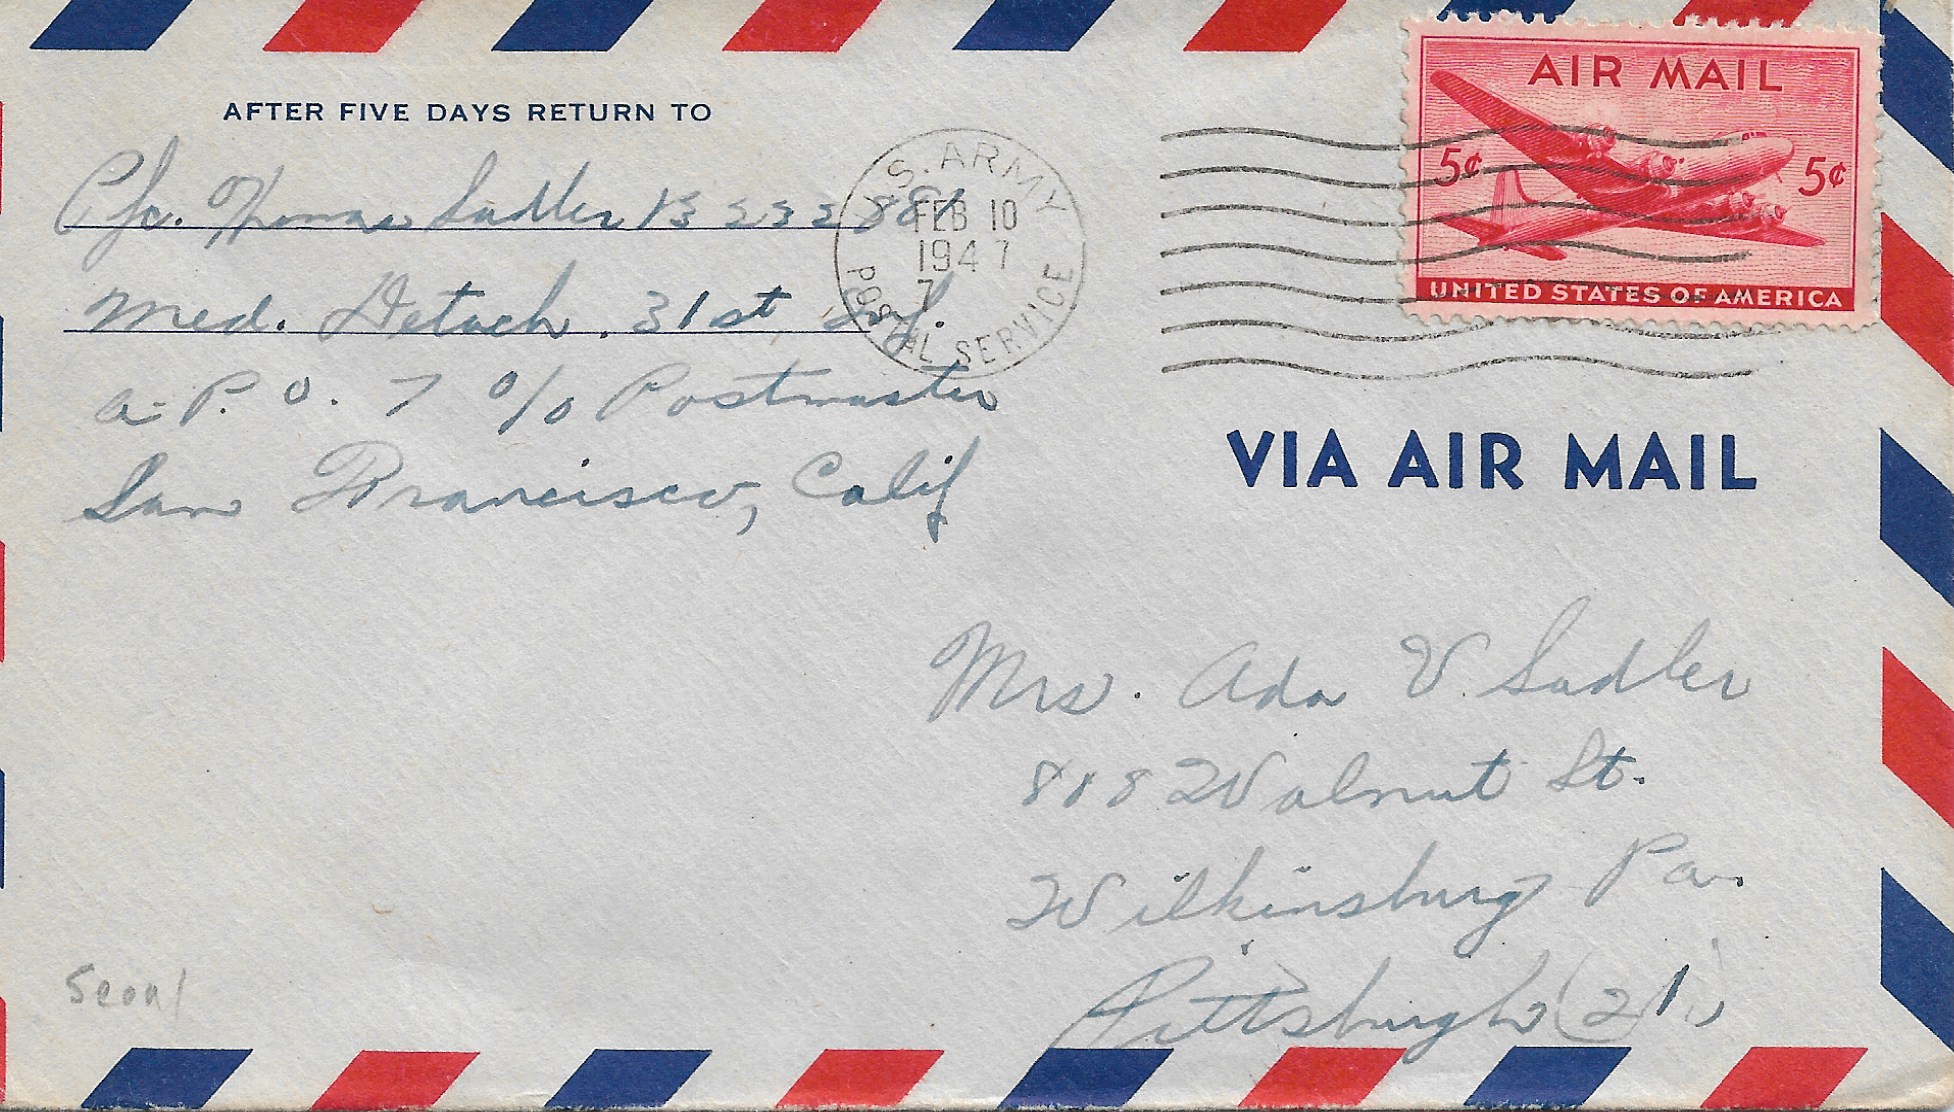 AFTER FIVE DAYS RETURN TO
Pfc. Thomas Sadler 13 222 887
Med. Detach. 31st Inf.
A.P.O. 7 c/o Postmaster
San Francisco, Calif
U.S. ARMY
FEB 10
1947
7
POSTAL SERVICE
AIR MAIL
5¢ 5¢
UNITED STATES OF AMERICA
VIA AIR MAIL
Mrs. Ada V. Sadler
808 Walnut St.
Wilkinsburg Pa.
Pittsburgh (21)
Seoul